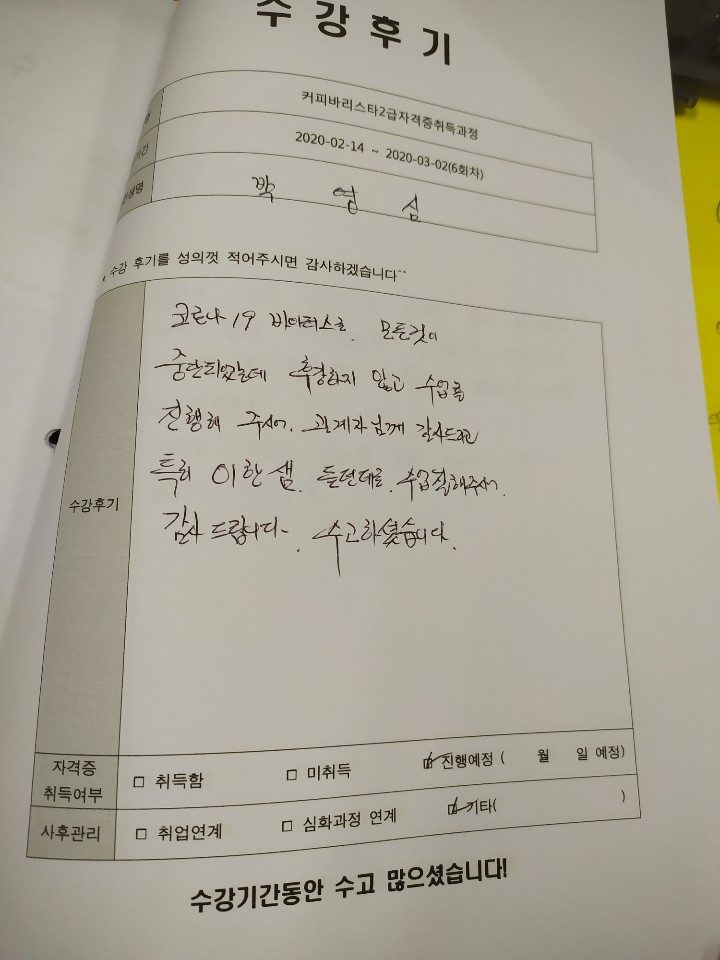 수강후기
커피바리스타2급자격증취득과정
기간
2020-02-14 ~ 2020-03-02(6회차)
생명
박 영 심
수강 후기를 성의껏 적어주시면 감사하겠습니다^^
수강후기
코로나 19 바이러스로. 모든것이
중단되었는데 휴강하지 않고 수업을
진행해 주셔서. 관계자님께 감사드리고
특히 이한샘. 수업잘해주셔서.
감사드립니다~. 수고하셨습니다.
자격증
취득여부
□ 취득함 □ 미취득 ☑ 진행예정 ( 월 일 예정)
사후관리
□ 취업연계 □ 심화과정 연계 ☑ 기타( )
수강기간동안 수고 많으셨습니다!